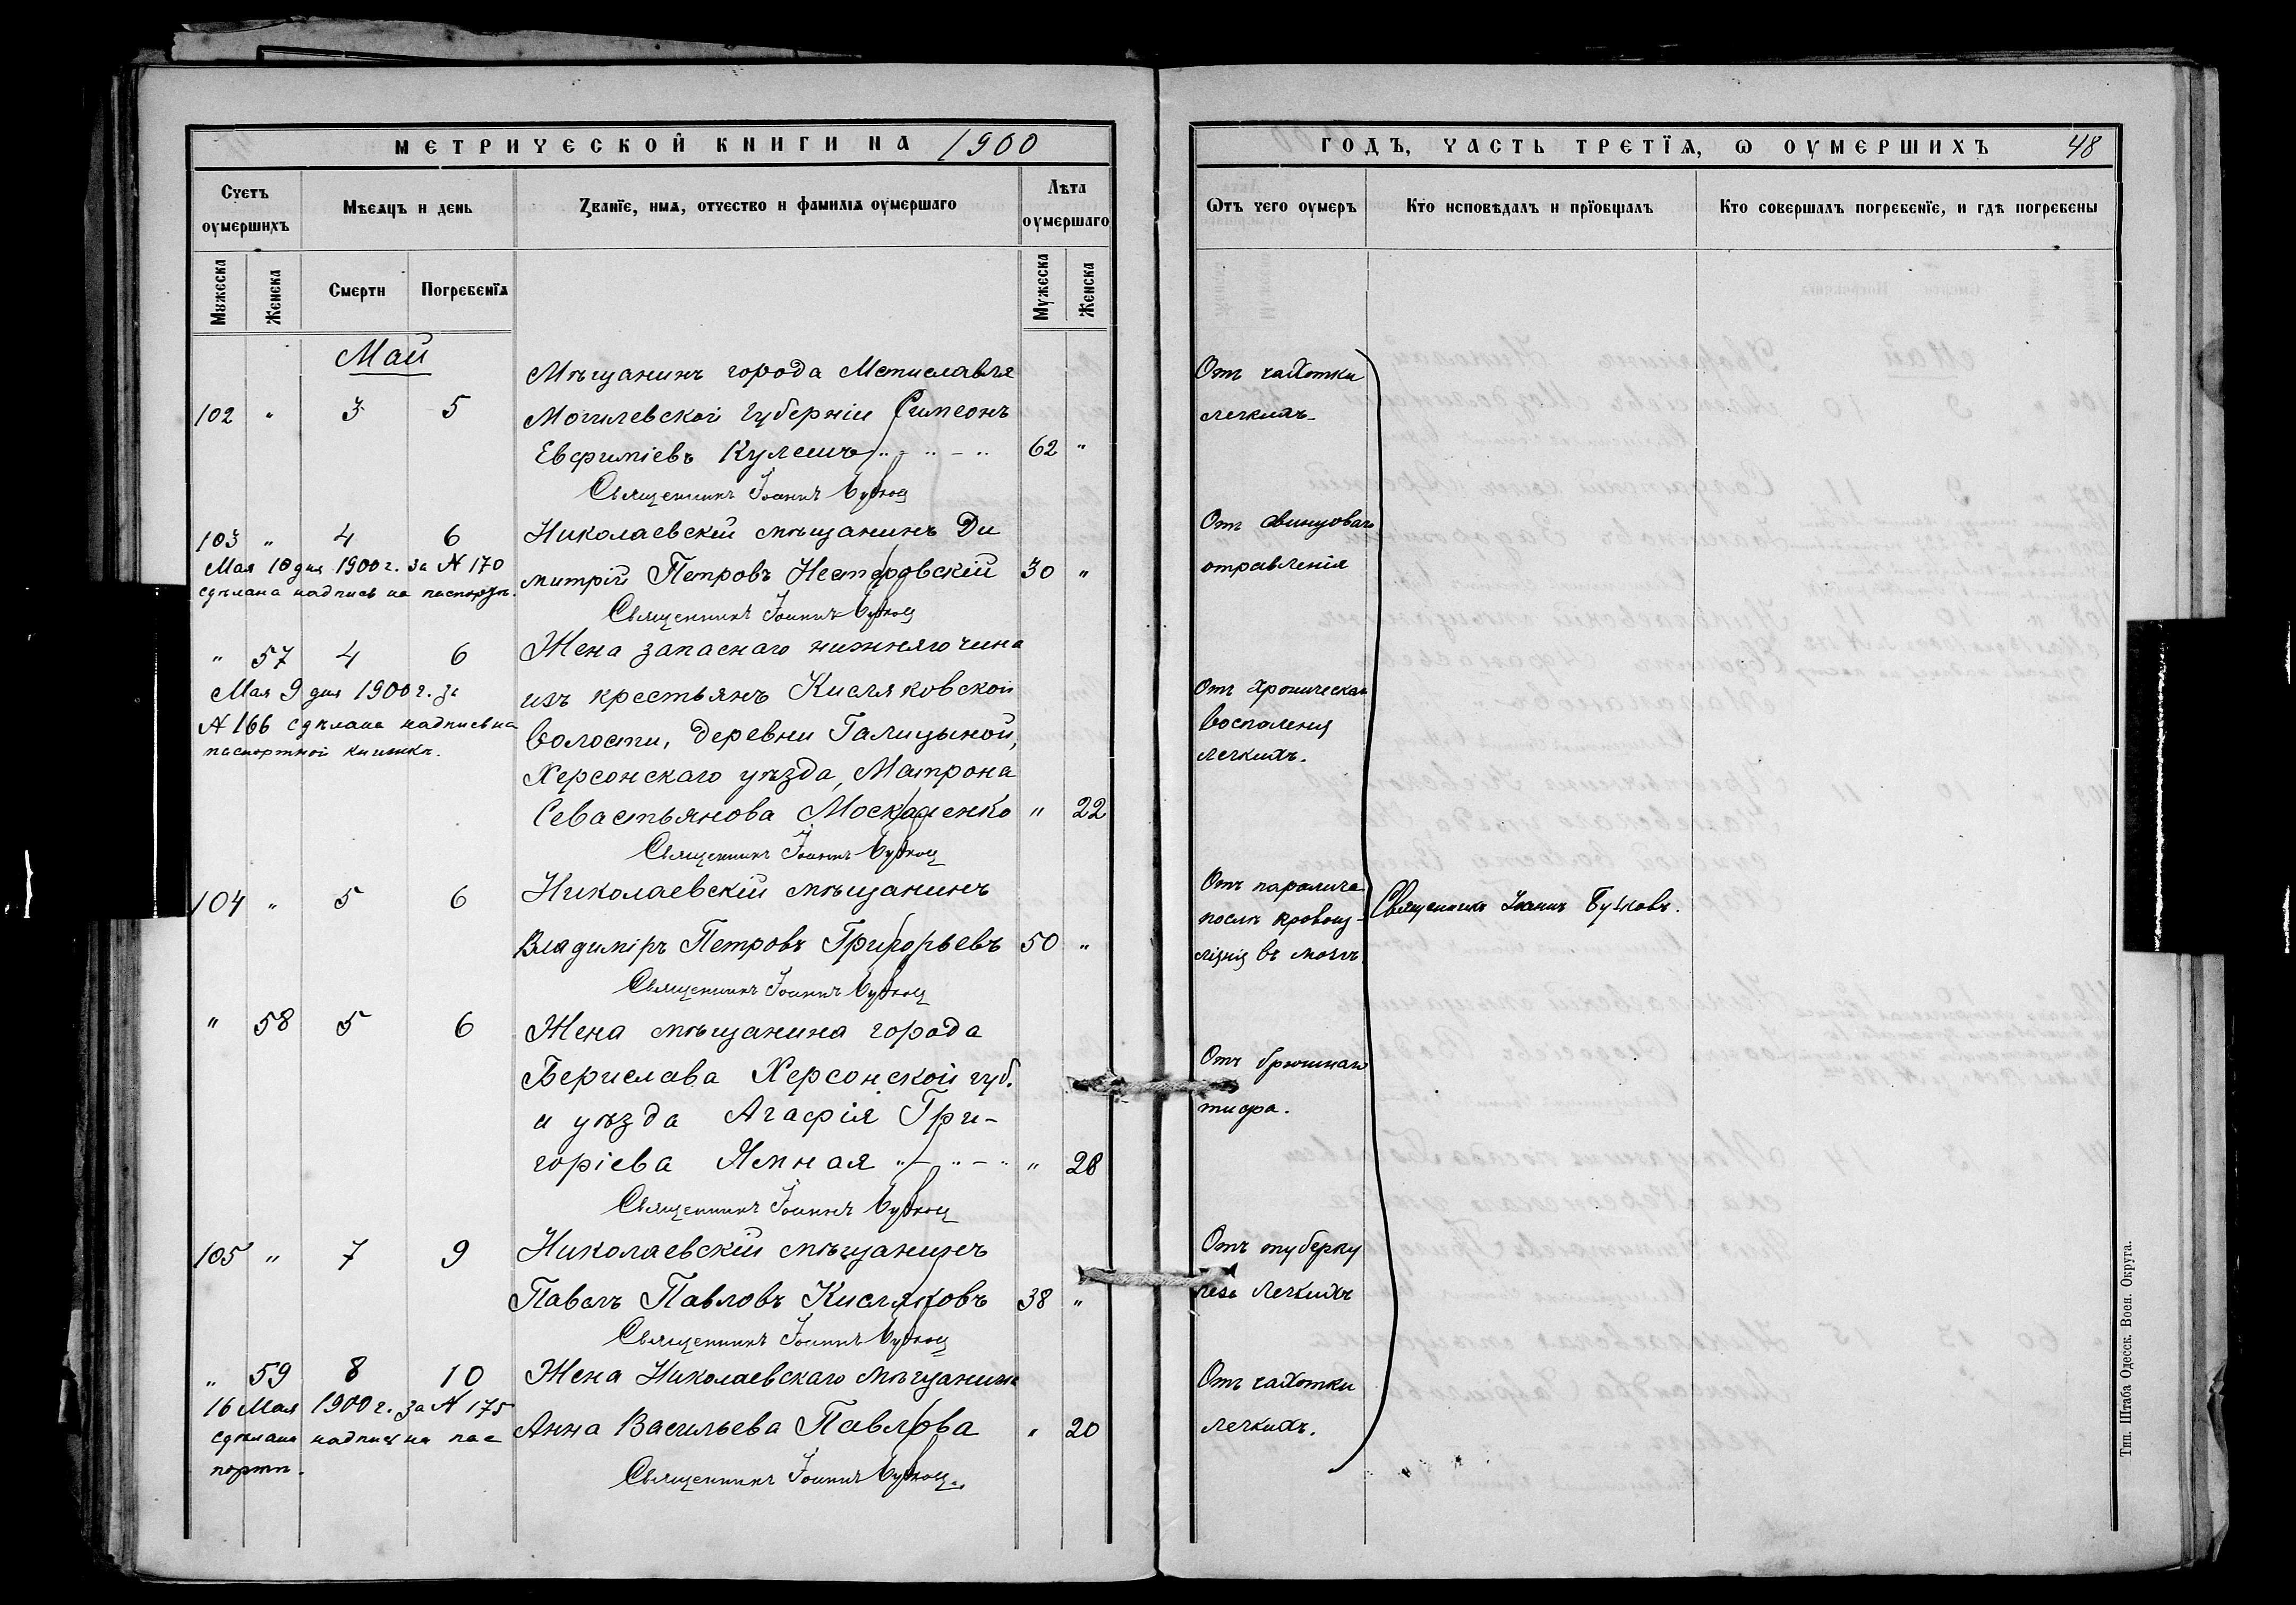 МЕТРИЧЕСКОЙ КНИГИ НА 1900
Счетъ оумершихъ
Мѣсяцъ и день
Званїе, имя, отчество и фамилїя оумершаго
Лѣта оумершаго
Мужеска
Женска
Смерти
Погребенїя
Мужеска
Женска
Май
102 " 3 5
Мѣщанинъ города Мстиславля
Могилевской губерніи Симеонъ
Евфиміевъ Кулешъ " - " - " 62 "
Священникъ Іоаннъ Бутков
103 " 4 6
Николаевскій мѣщанинъ Ди
митрій Петровъ Нестеровскій 30 "
Священникъ Іоаннъ Бутков
Мая 10 дня 1900 г. за N 170
сдѣлана надпись на паспортѣ.
" 57 4 6
Жена запаснаго нижняго чина
изъ крестьянъ Кисляковской
волости, деревни Галицыной,
Херсонскаго уѣзда, Матрона
Севастьянова Москаленко " 22
Священникъ Іоаннъ Бутков
Мая 9 дня 1900 г. за
N 166 сдѣлана надпись на
паспортной книжкѣ.
104 " 5 6
Николаевскій мѣщанинъ
Владиміръ Петровъ Григорьевъ 50 "
Священникъ Іоаннъ Бутков
" 58 5 6
Жена мѣщанина города
Берислава Херсонской губ.
и уѣзда Агафія Гри-
горіева Ямная " - " - " " 28
Священникъ Іоаннъ Бутков
105 " 7 9
Николаевскій мѣщанинъ
Павелъ Павловъ Кисляковъ 38 "
Священникъ Іоаннъ Бутков
" 59 8 10
Жена Николаевскаго мѣщанина
Анна Васильева Павлова " 20
Священникъ Іоаннъ Бутков.
16 Мая 1900 г. за N 175
сдѣлана надпись на пас
портѣ.
ГОДЪ, ЧАСТЬ ТРЕТЇЯ, Ѡ ОУМЕРШИХЪ 48
Ѿтъ чего оумеръ
Кто исповѣдалъ и прїобщалъ
Кто совершалъ погребенїе, и гдѣ погребены
Отъ чахотки
легкихъ.
Отъ свинцоваго
отравленія
Отъ хроническаго
воспаленія
легкихъ.
Отъ паралича
послѣ кровоиз-
ліянія въ мозгъ.
Священникъ Іоаннъ Бутковъ.
Отъ брюшнаго
тифа.
Отъ туберку
леза легкихъ
Отъ чахотки
легкихъ.
Тип. Штаба Одесск. Воен. Округа.